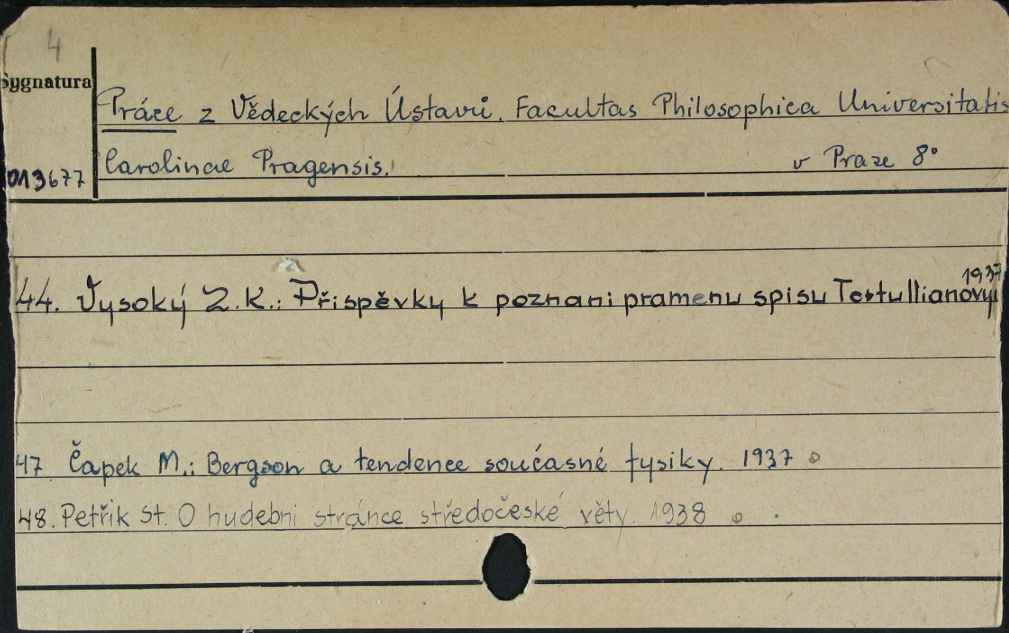 4
Sygnatura
Práce z Vědeckých Ústavů. Facultas Philosophica Universitatis
Carolinae Pragensis.
v Praze 8°
013677
1937
44. Vysoký Z.K.: Přispěvky k poznani pramenu spisu Tertullianovy
47 Čapek M.: Bergson a tendence současné fysiky. 1937
48. Petřik St. O hudebni stránce středočeské věty. 1938